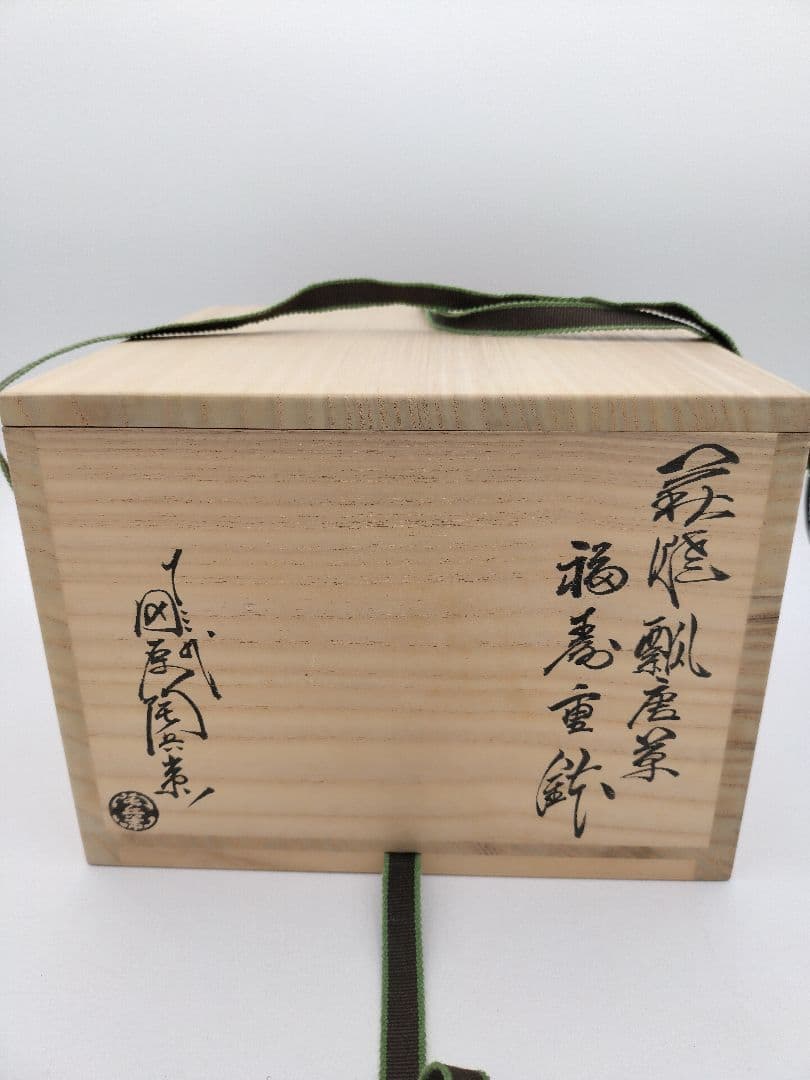 萩焼瓢唐草
福寿重鉢
十三代
田原陶兵衛